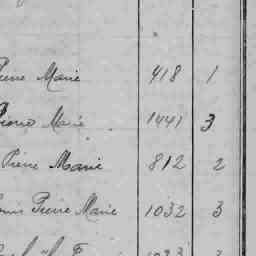 Pierre Marie 418 1
Pierre Marie 1441 3
Pierre Marie 812 2
Louis Pierre Marie 1032 3
3